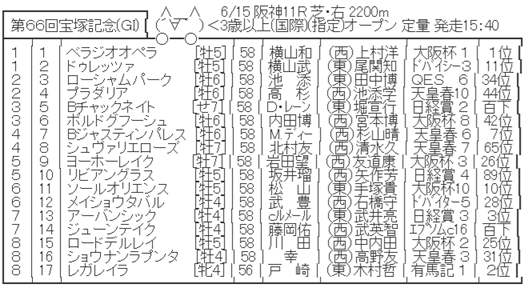 第66回宝塚記念(GI) (´∀`)<3歳以上(国際)(指定)オープン 定量 発走15:40
6/15 阪神11R 芝・右 2200m
1 1 ベラジオオペラ [牡5] 58 横山和 (西)上村洋 大阪杯 1 1位
1 2 ドゥレッツァ [牡5] 58 横山武 (東)尾関知 ドバイシー3 11位
2 3 ローシャムパーク [牡6] 58 池添 (東)田中博 QES 6 34位
2 4 プラダリア [牡6] 58 高杉 (西)池添学 天皇春10 44位
3 5 Bチャックネイト [セ7] 58 D・レーン (東)堀宣行 日経賞 2 百下
3 6 ボルドグフーシュ [牡6] 58 内田博 (西)宮本博 大阪杯 8 42位
4 7 Bジャスティンパレス [牡6] 58 M.ディー (西)杉山晴 天皇春 6 7位
4 8 シュヴァリエローズ [牡7] 58 北村友 (西)清水久 天皇春 7 65位
5 9 ヨーホーレイク [牡7] 58 岩田望 (西)友道康 大阪杯 3 26位
5 10 リビアングラス [牡5] 58 坂井瑠 (西)矢作芳 日経賞 4 89位
6 11 ソールオリエンス [牡5] 58 松山 (東)手塚貴 大阪杯10 10位
6 12 メイショウタバル [牡4] 58 武豊 (西)石橋守 ドバイター5 28位
7 13 アーバンシック [牡4] 58 cルメール (東)武井亮 日経賞 3 3位
7 14 ジューンテイク [牡4] 58 藤岡佑 (西)武英智 エプソムc16 百下
8 15 ロードデルレイ [牡5] 58 川田 (西)中内田 大阪杯 2 25位
8 16 ショウナンラプンタ [牡4] 58 幸 (西)高野友 天皇春 3 31位
8 17 レガレイラ [牝4] 56 戸崎 (東)木村哲 有馬記 1 2位